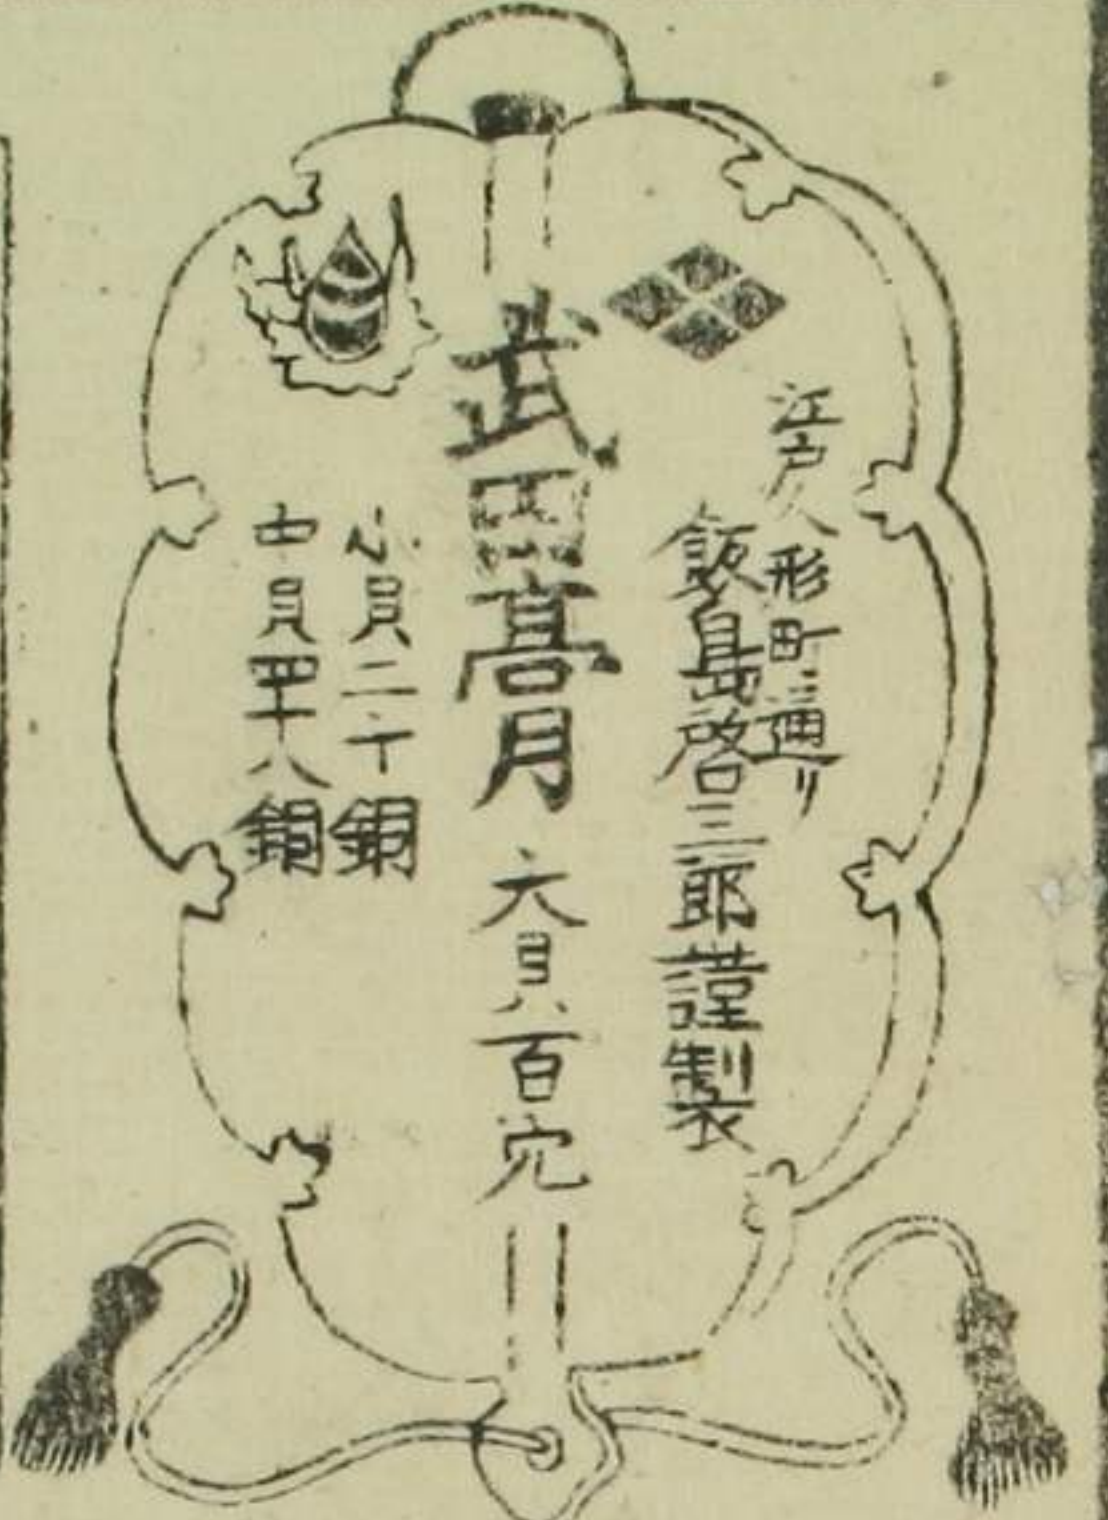 江戸人形町三通り
飯島啓三郎謹製
武田膏 大貝百穴
小貝二十銅
中貝四十八銅